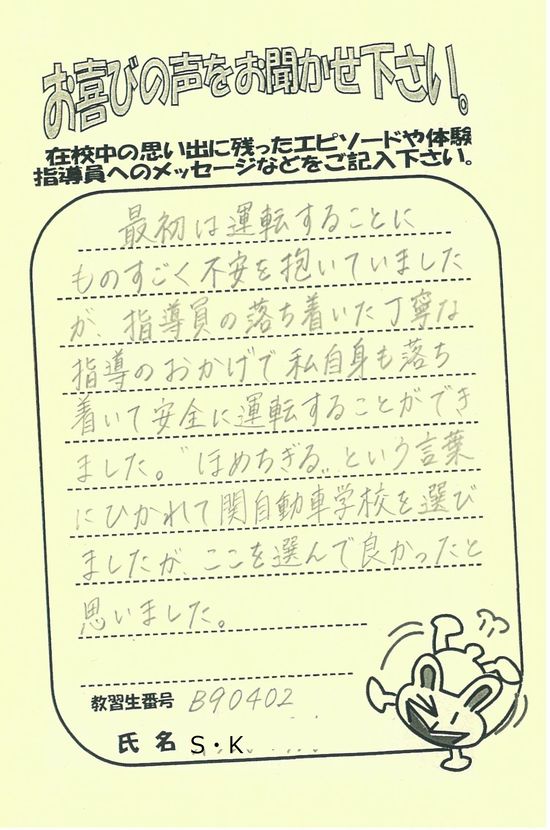 お喜びの声をお聞かせ下さい。
在校中の思い出に残ったエピソードや体験
指導員へのメッセージなどをご記入下さい。
最初は運転することに
ものすごく不安を抱いていました
が、指導員の落ち着いた丁寧な
指導のおかげで私自身も落ち
着いて安全に運転することができ
ました。〝ほめちぎる〟という言葉
にひかれて関自動車学校を選び
ましたが、ここを選んで良かったと
思いました。
教習生番号 B90402
氏名 S・K